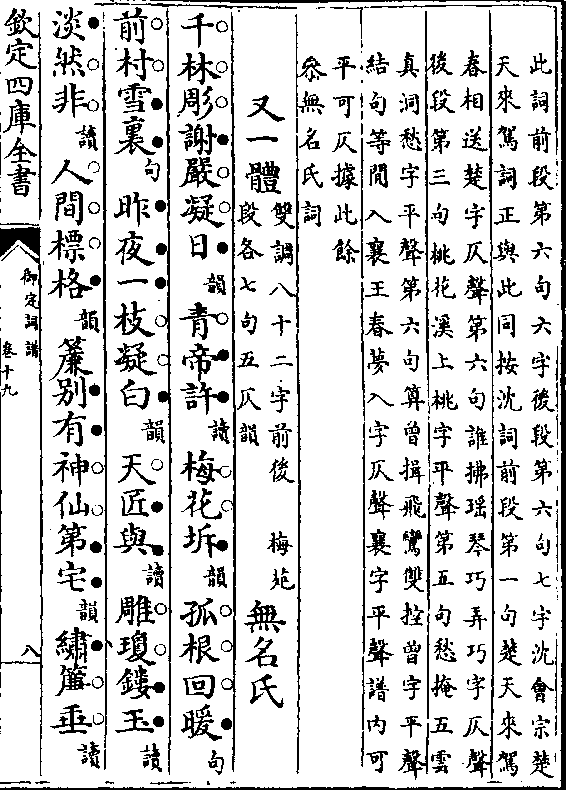 此詞前段第六句六字後段第六句七字沈會宗楚
天來駕詞正與此同按沈詞前段第一句楚天來駕
春相送楚字仄聲第六句誰拂瑶琴巧弄巧字仄聲
後段第三句桃花溪上桃字平聲第五句愁掩五雲
真洞愁字平聲第六句算曾揖飛鸞雙控曾字平聲
結句等閒入襄王春夢入字仄聲襄字平聲譜内可
平可仄據此餘
叅無名氏詞
又一體 雙調八十二字前後
段各七句五仄韻 梅苑 無名氏
千林彫謝嚴凝日韻青帝許讀梅花坼韻孤根回暖句
前村雪裏句昨夜一枝凝白韻天匠與讀雕瓊鏤玉讀
淡然非讀人間標格韻簾别有神仙第宅韻繡簾垂讀
欽定四庫全書
御定詞譜
卷十九
八